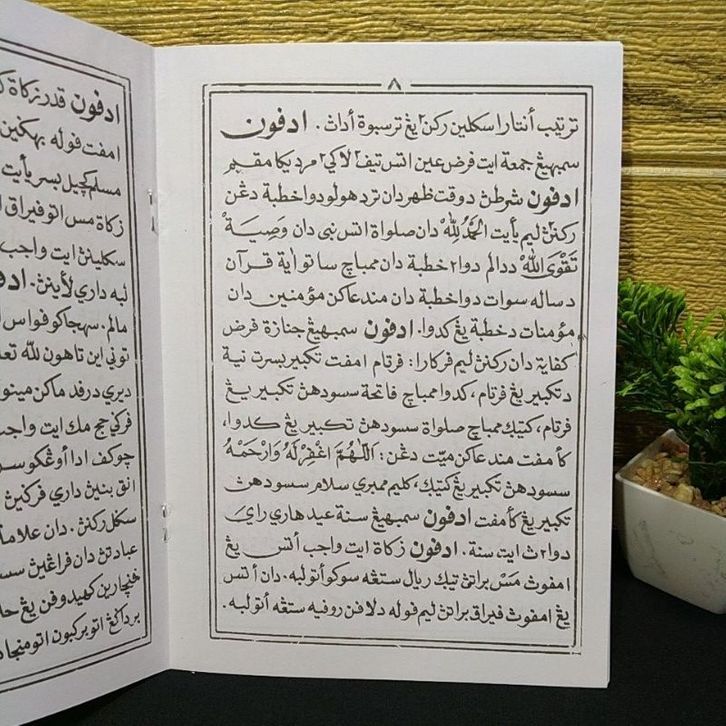 ٨
ترتيب أنتارا سكلين ركن٢ يڠ ترسبوة أداث . ادفون
سمبهيڠ جمعة ايت فرض عين اتس تيف٢ لاكي٢ مرديكا مقيم
ادفون شرطڽ دوقت ظهر دان تردهولو دوا خطبة دڠن
ركنڽ ليم يأيت الحَمْدُ لِلّٰهْ دان صلواة اتس نبي دان وَصِيَةْ
تَقْوَى اللّٰهْ ددالم دوا٢ خطبة دان ممباچ ساتو اية قرآن
دساله سوات دوا خطبة دان مندعاكن مؤمنين دان
مؤمنات دخطبة يڠ كدوا. ادفون سمبهيڠ جنازة فرض
كفاية دان ركنڽ ليم فركارا: فرتام امفت تكبير بسرت نية
دتكبير يڠ فرتام، كدوا ممباچ فاتحة سسودهن تكبير يڠ
فرتام، كتيك ممباچ صلواة سسودهن تكبير يڠ كدوا،
كأمفت مندعاكن ميّت دڠن: اَللّٰهُمَّ اغْفِرْ لَهُ وَارْحَمْهُ
سسودهن تكبير يڠ كتيك، كليم ممبري سلام سسودهن
تكبير يڠ كأمفت ادفون سمبهيڠ سنة عيد هاري راي
دوا٢ث ايت سنة. ادفون زكاة ايت واجب أتس يڠ
امفوث مَسْ براتڽ تيك ريال ستڠه سوكو أتو لبه. دان أتس
يڠ امفوث فيراق براتڽ ليم فوله دلافن روفيه ستڠه أتو لبه.
ادفون قدر زكاة
امفت فوله بهكين
مسلم كچيل بسر يأيت
زكاة مس اتو فيراق
سكلينڽ ايت واجب
لبه داري لأينڽ.
مالم. سهچ كوفواس
توني اين تاهون لله تعا
ديري درفد ماكن مينو
فركي حج مك ايت واجب
چوكف ادا أوڠكوس
انق بنين داري فركين
سكل ركنڽ. دان علاما
عبادتڽ دان فراغين سس